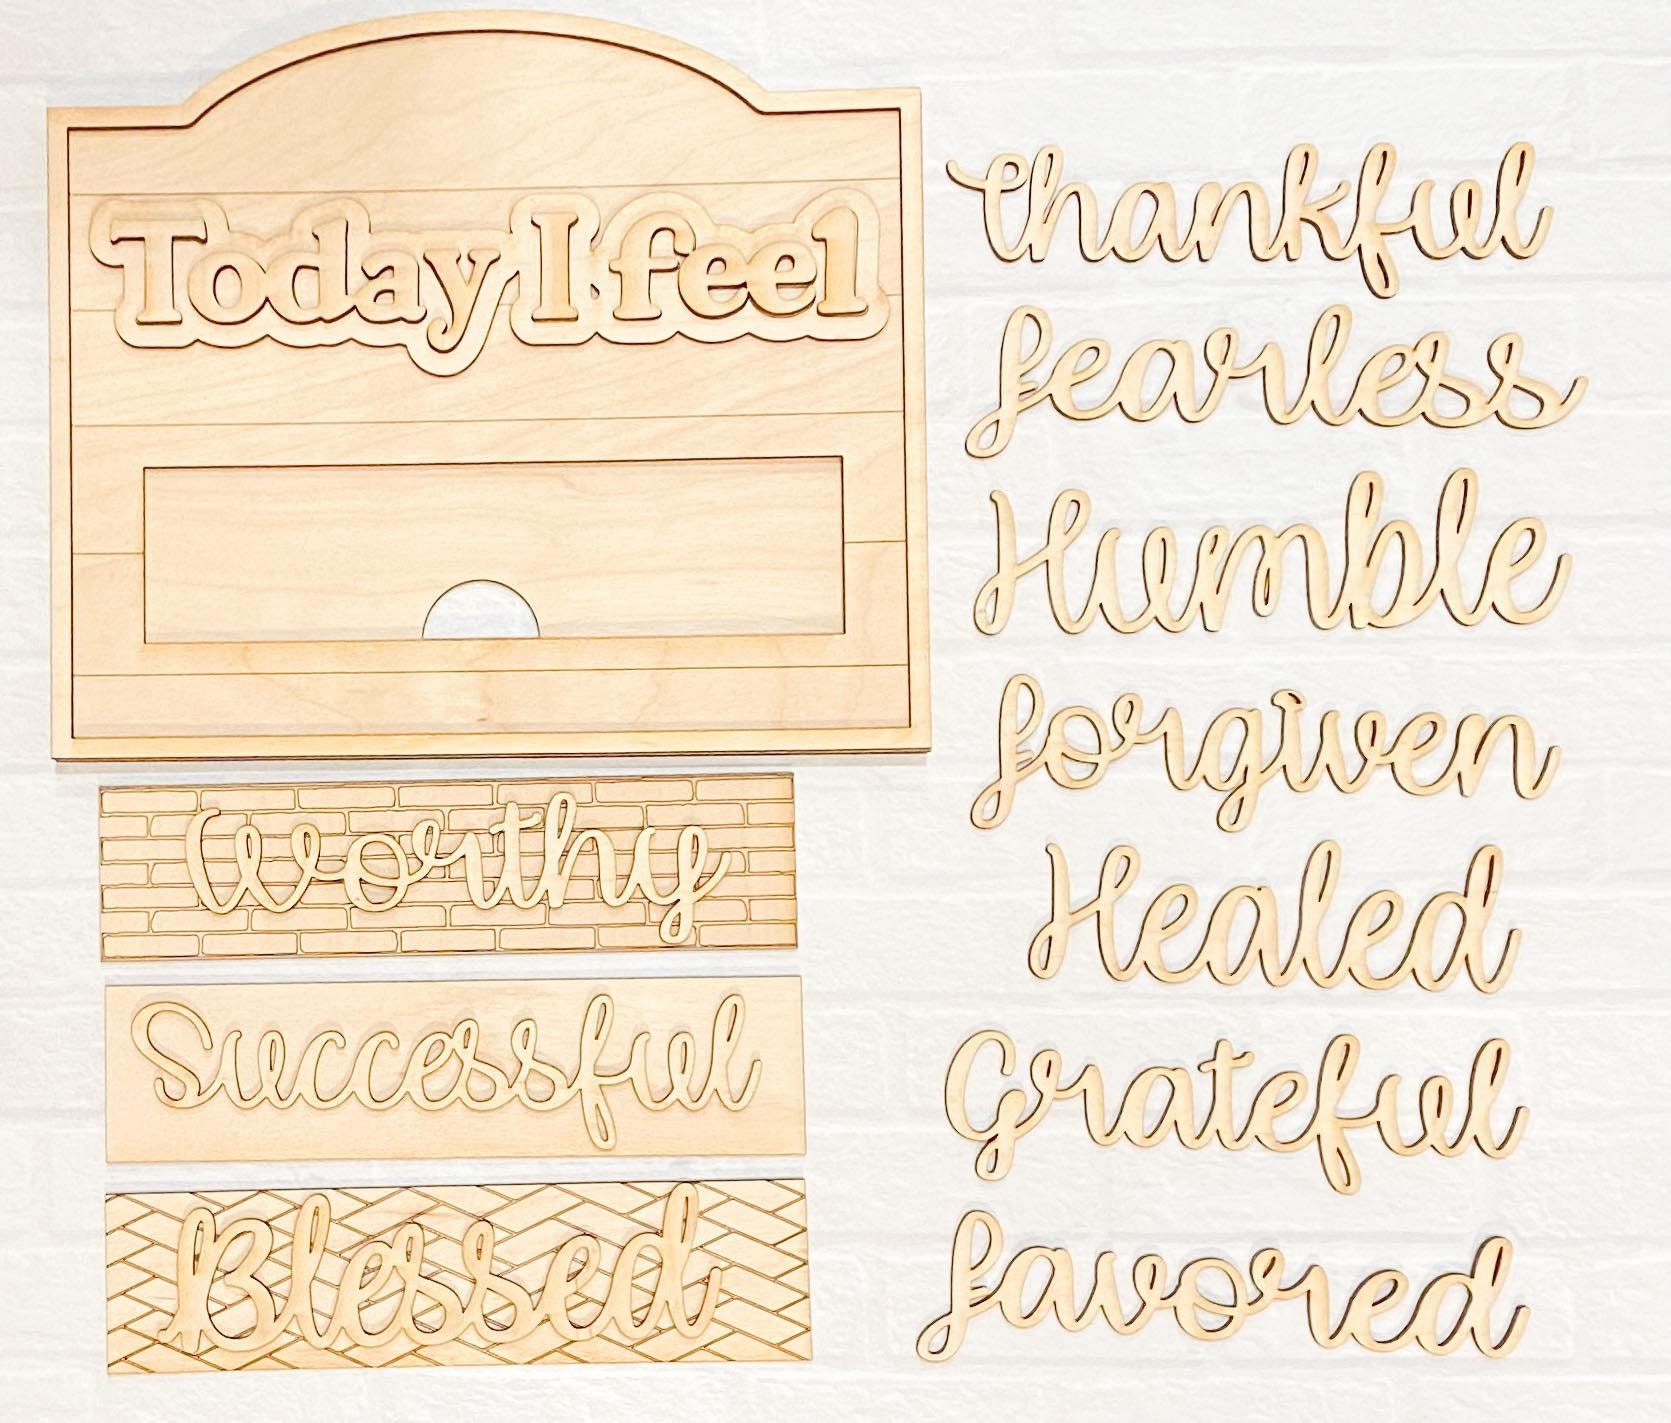 Today I feel
Worthy
Successful
Blessed
Thankful
fearless
Humble
forgiven
Healed
Grateful
favored